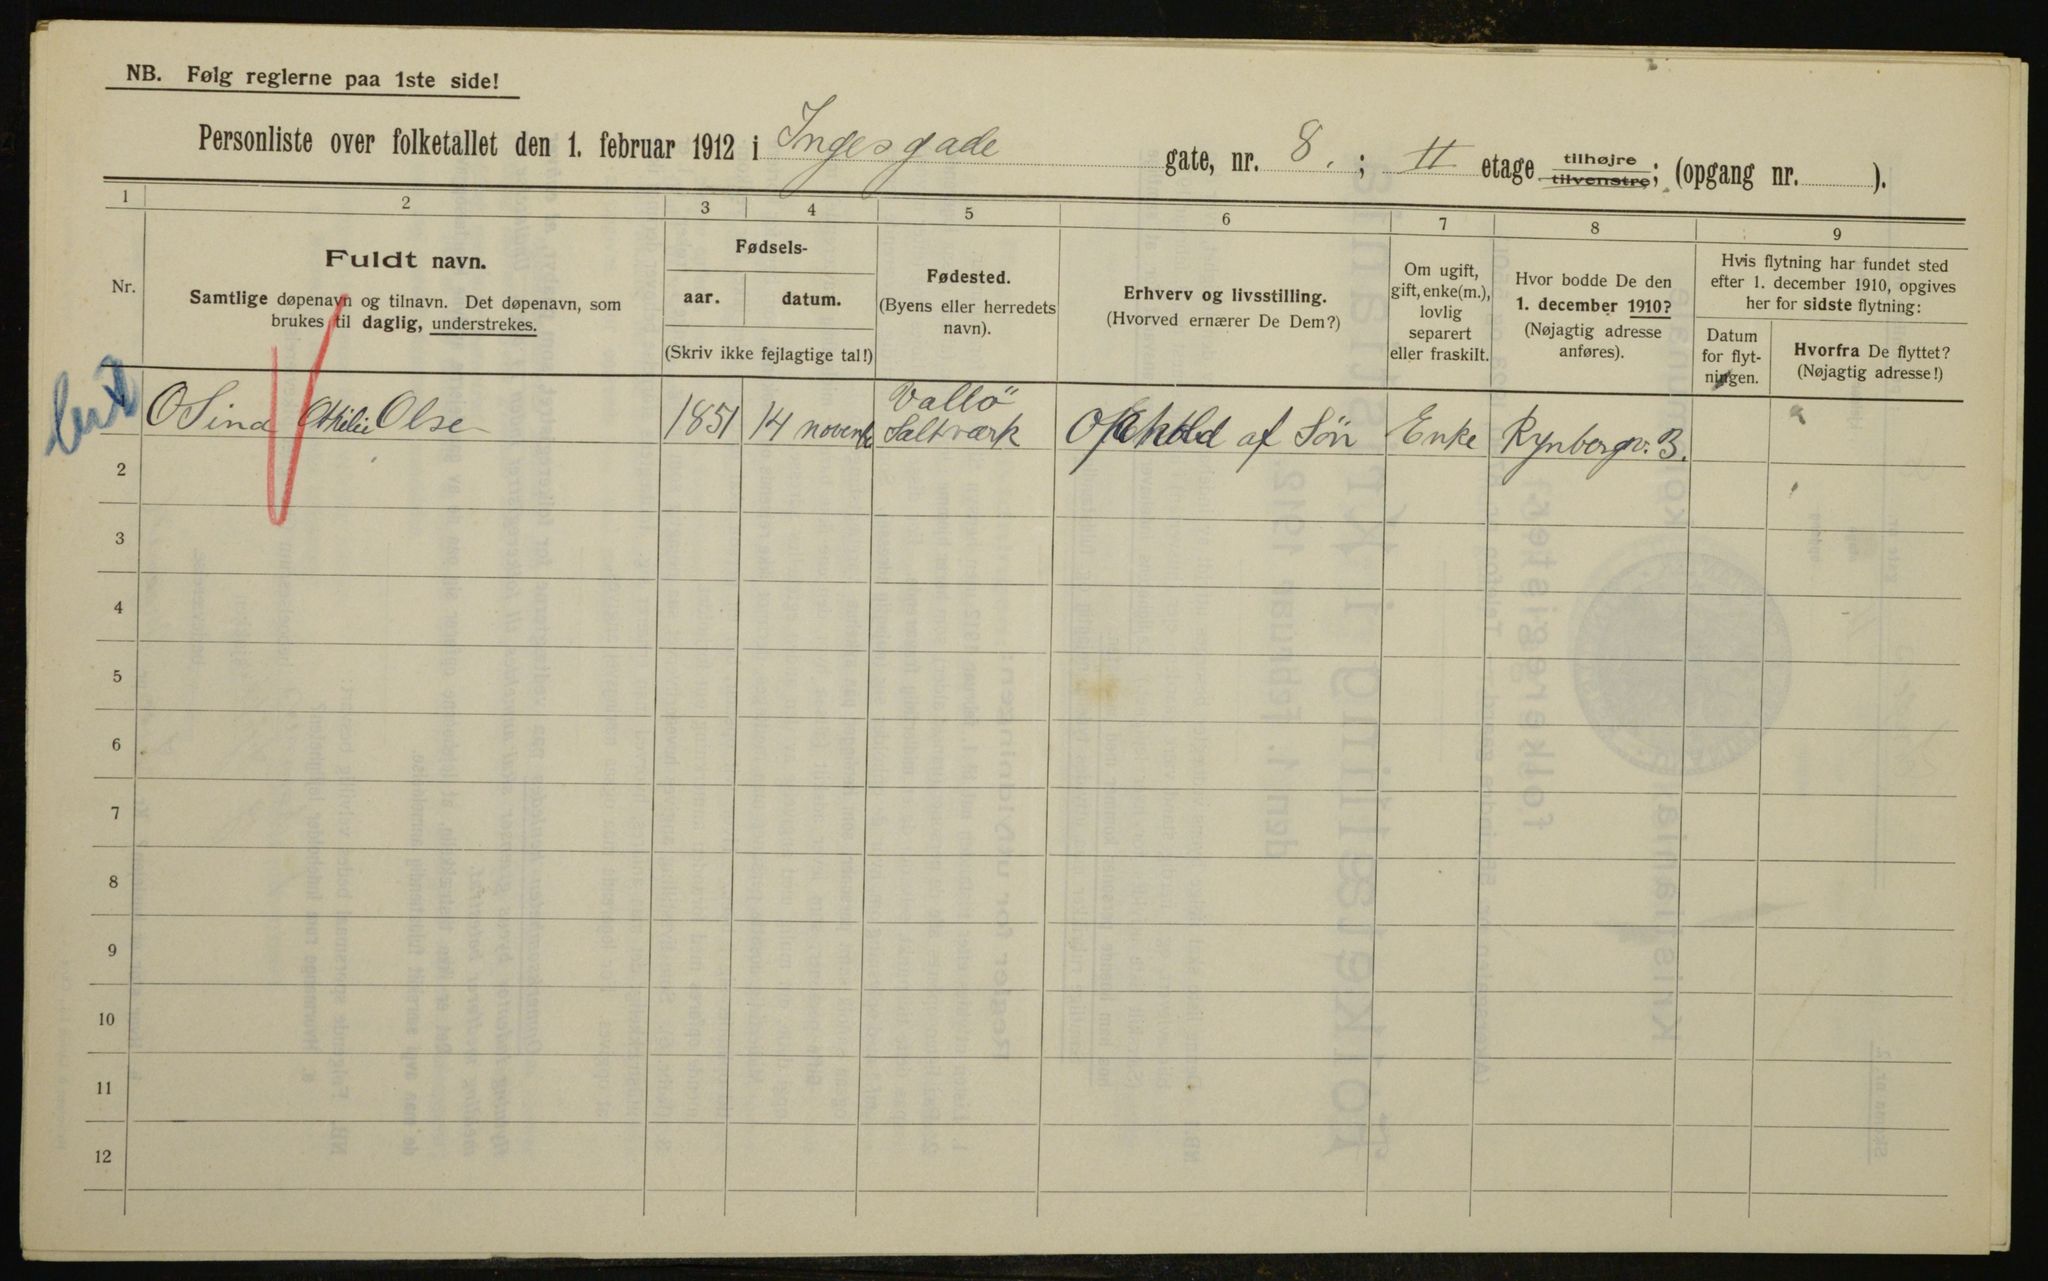 NB. Følg reglerne paa 1ste side!
Personliste over folketallet den 1. februar 1912 i Ingesgade gate, nr. 8. ; II etage tilhøjre tilvenstre; (opgang nr. ).
1 2 3 4 5 6 7 8 9
Nr.
Fuldt navn.
Samtlige døpenavn og tilnavn. Det døpenavn, som
brukes til daglig, understrekes.
Fødsels-
aar. datum.
(Skriv ikke fejlagtige tal!)
Fødested.
(Byens eller herredets
navn).
Erhverv og livsstilling.
(Hvorved ernærer De Dem?)
Om ugift,
gift, enke(m.),
lovlig
separert
eller fraskilt.
Hvor bodde De den
1. december 1910?
(Nøjagtig adresse
anføres).
Hvis flytning har fundet sted
efter 1. december 1910, opgives
her for sidste flytning:
Datum
for flyt-
ningen.
Hvorfra De flyttet?
(Nøjagtig adresse!)
Vallö
OSina Othilie Olse 1851 14 novembe Saltværk af Søn Enke Rynbergv. 3.
2
3
4
5
6
7
8
9
10
11
12